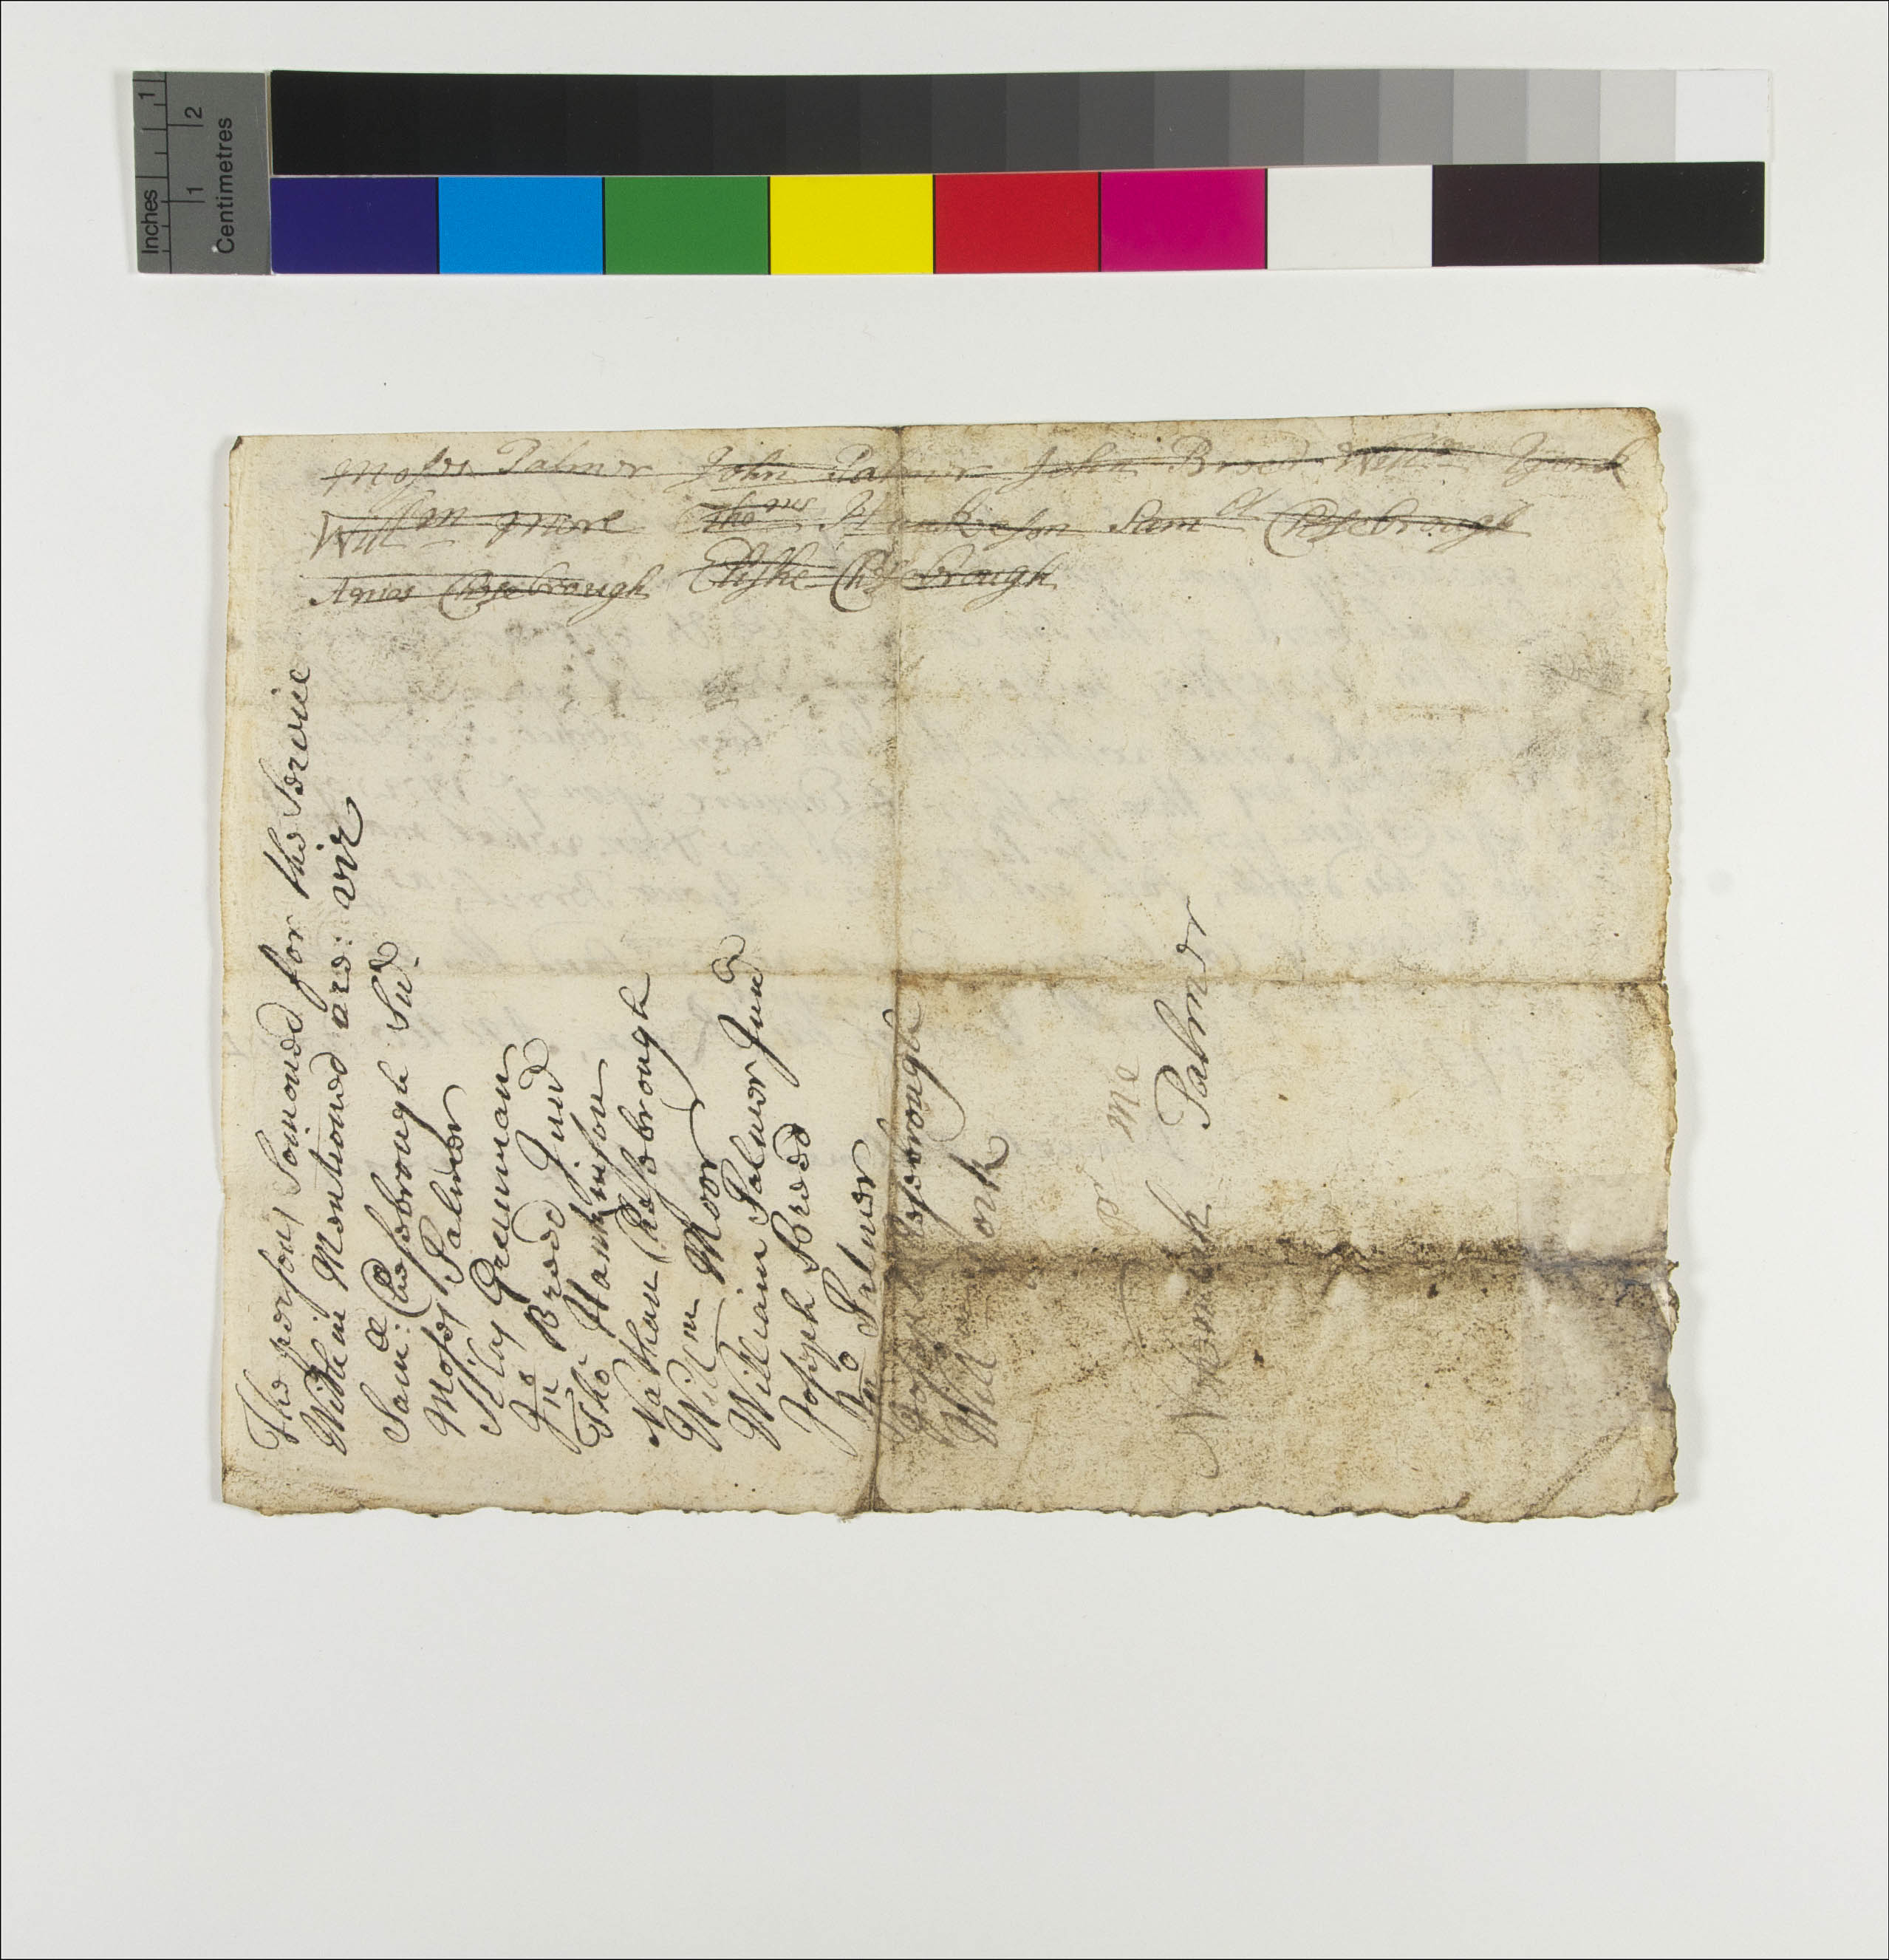 Inches
1
Centimetres
1 2
Moses Palmer John Palmer John Breed Willm York
Willm More Thomas Hankeson Saml Chesebrough
Amos Chesebrough Elishe Chesebrough
The persons Somoned for the Service
Within Mentioned are: viz
Sam:ll Chesebrough Sed:
Moses Palmer
Silas Greenman
Jno Breed Jund
Tho: Hankinson
Nathan Chesebrough
Willm Moor
William Palmer Jund
Joseph Breed
Jno Palmer
Chesebrough
Will York
Pr Me
Nehemiah Palmer